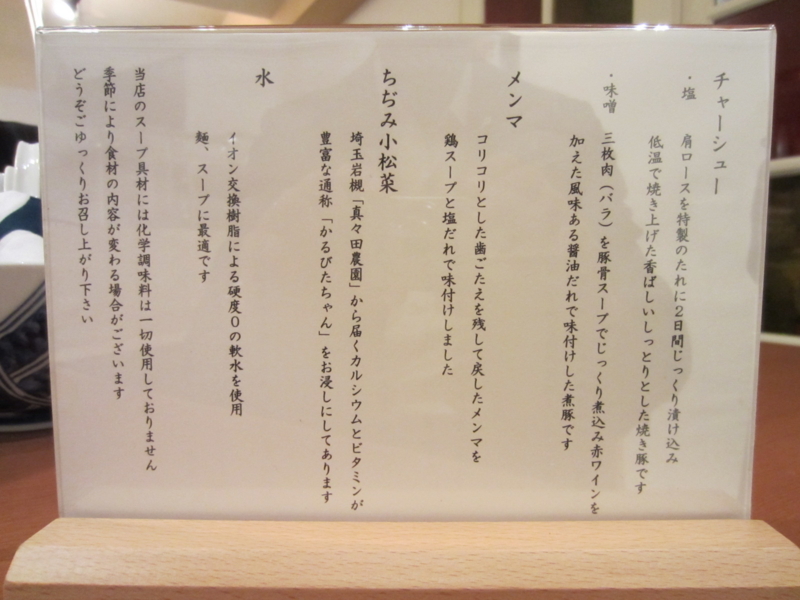 チャーシュー
・塩 肩ロースを特製のたれに２日間じっくり漬け込み
低温で焼き上げた香ばしいしっとりとした焼き豚です
・味噌 三枚肉（バラ）を豚骨スープでじっくり煮込み赤ワインを
加えた風味ある醤油だれで味付けした煮豚です
メンマ
コリコリとした歯ごたえを残して戻したメンマを
鶏スープと塩だれで味付けしました
ちぢみ小松菜
埼玉岩槻「真々田農園」から届くカルシウムとビタミンが
豊富な通称「かるびたちゃん」をお浸しにしてあります
水
イオン交換樹脂による硬度０の軟水を使用
麺、スープに最適です
当店のスープ具材には化学調味料は一切使用しておりません
季節により食材の内容が変わる場合がございます
どうぞごゆっくりお召し上がり下さい